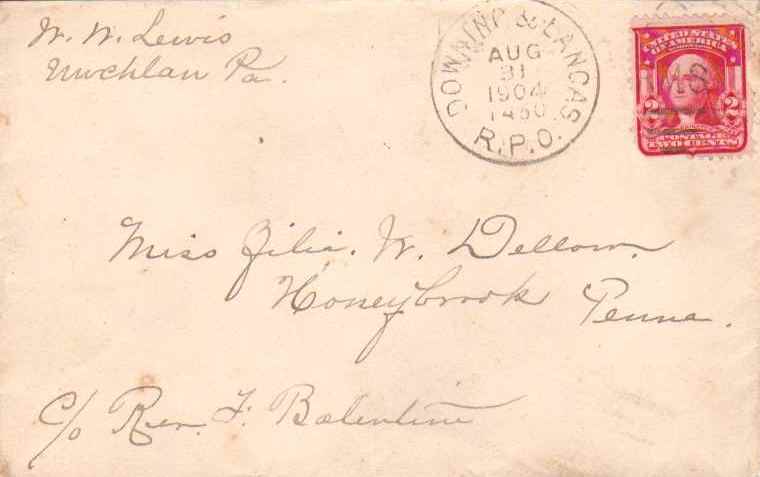 W. W. Lewis
Uwchlan Pa.
DOWNING & LANCAS.
AUG
31
1904
R.P.O.
UNITED STATES
OF AMERICA
2 2
POSTAGE
TWO CENTS
Miss Zilia. W. Dellow.
Honeybrook Penna.
c/o Rev. F. Balentine